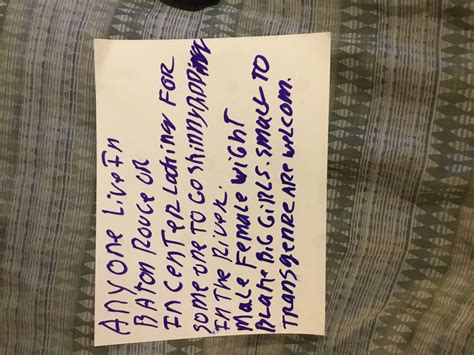 Anyone Live In
Baton Rouge or
In Center Looking For
someone to go shinnydipping
In the River.
Male Female Wight
Blake Big Girls. Small to
Transgenre are welcom.